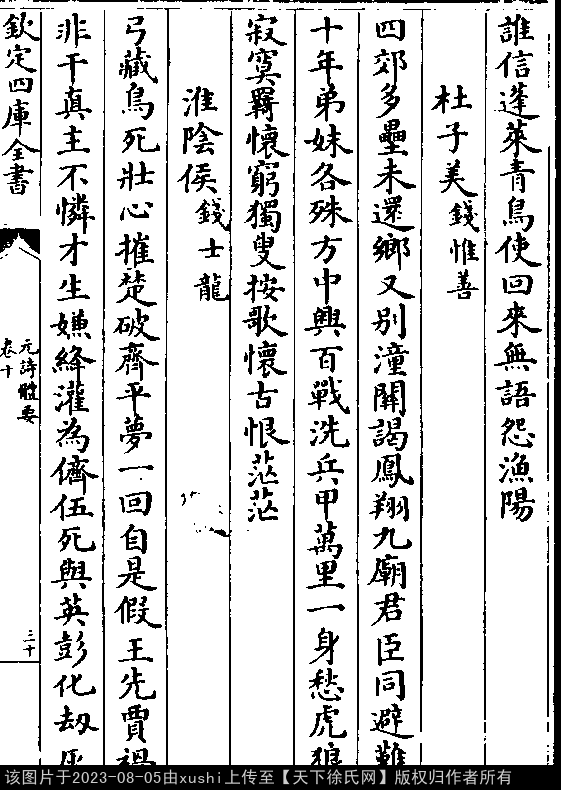 誰信蓬萊青鳥使回來無語怨漁陽
杜子美錢惟善
四郊多壘未還鄉又别潼關謁鳳翔九廟君臣同避難
十年弟妹各殊方中興百戰洗兵甲萬里一身愁虎狼
寂寞羇懷窮獨叟按歌懷古恨茫茫
淮陰侯錢士龍
弓藏鳥死壯心摧楚破齊平夢一回自是假王先賈禍
非干真主不憐才生嫌絳灌為儕伍死與英彭化刼
欽定四庫全書
元詩體要
卷十
三十
该图片于2023-08-05由xushi上传至【天下徐氏网】版权归作者所有